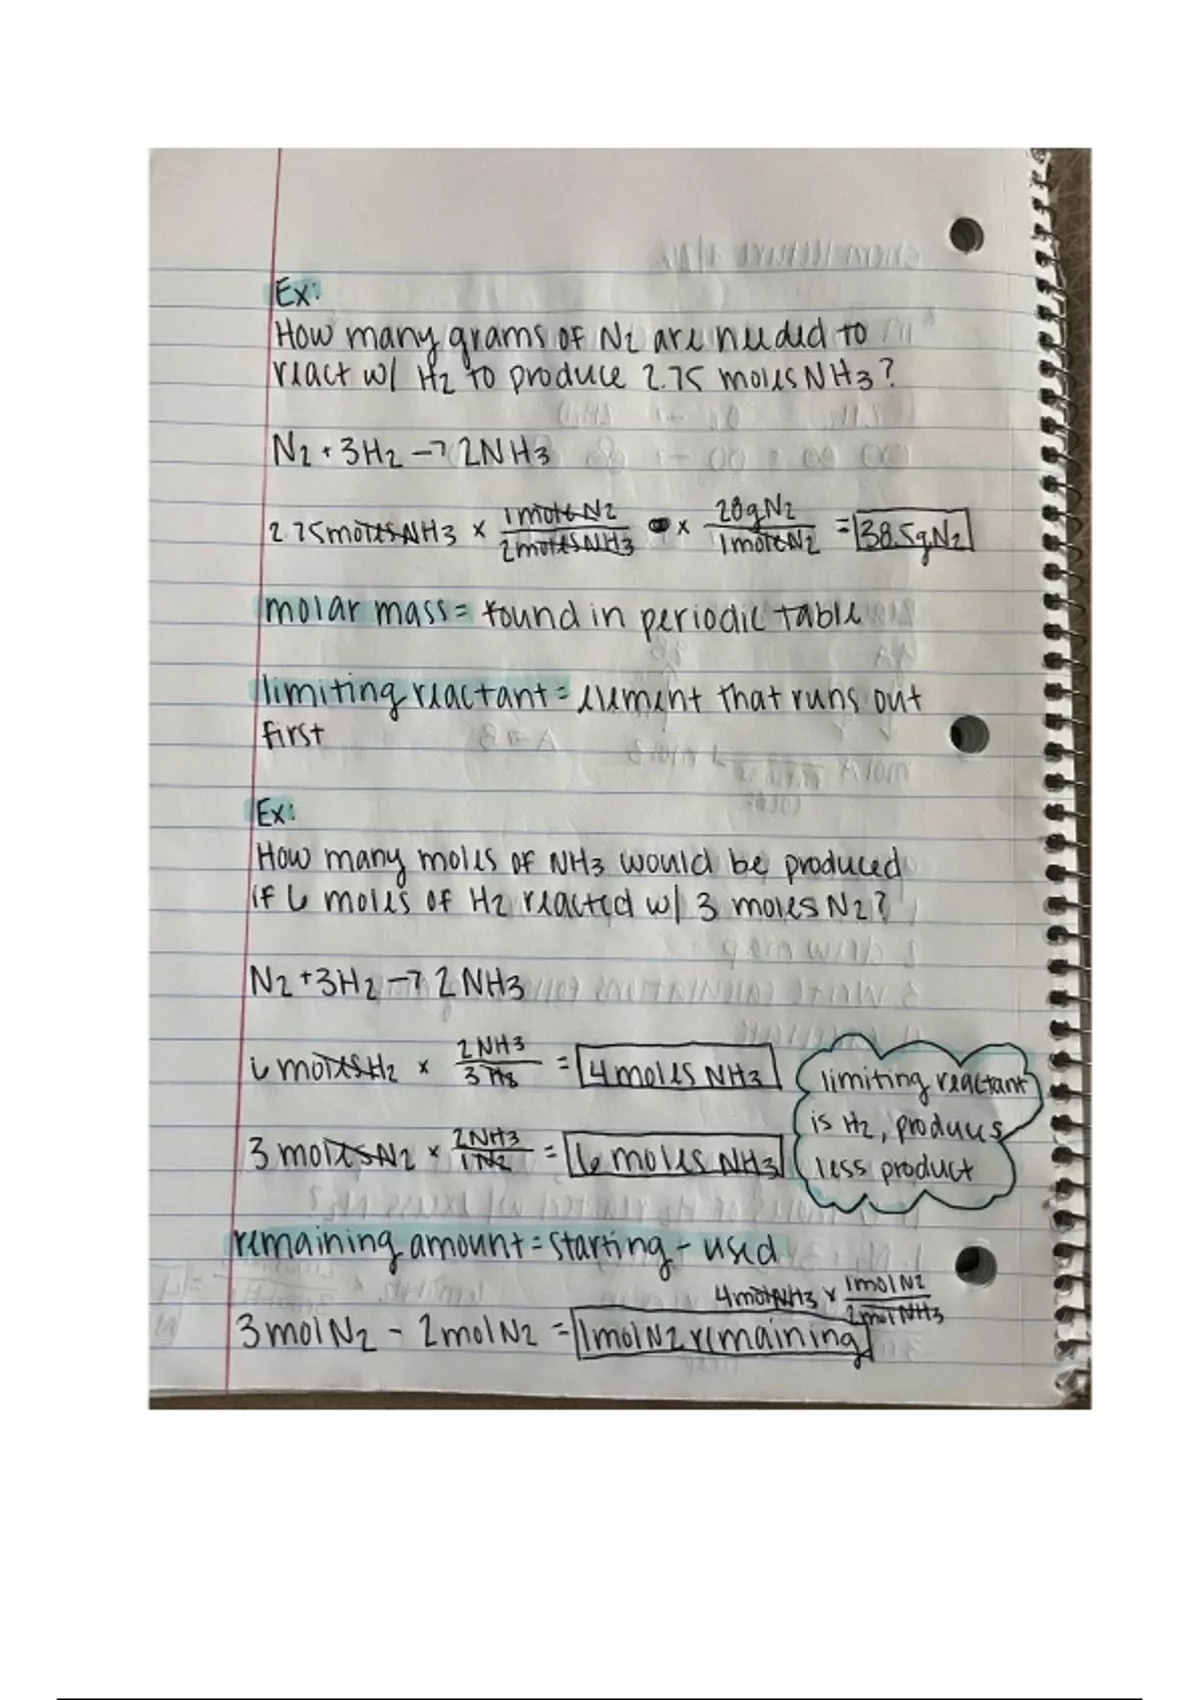 Ex:
How many grams of N2 are needed to
react w/ H2 to produce 2.75 moles NH3?
N2 + 3H2 → 2NH3
2.75 moles NH3 x 1 mole N2 / 2 moles NH3 x 28g N2 / 1 mole N2 = 38.5g N2
molar mass = found in periodic table
limiting reactant = element that runs out
first
Ex:
How many moles of NH3 would be produced
if 6 moles of H2 reacted w/ 3 moles N2?
N2 + 3H2 → 2NH3
6 moles H2 x 2NH3 / 3 H2 = 4 moles NH3
limiting reactant
is H2, produces
less product
3 moles N2 x 2NH3 / 1 N2 = 6 moles NH3
remaining amount = starting - used
4 mol NH3 x 1 mol N2 / 2 mol NH3
3 mol N2 - 2 mol N2 = 1 mol N2 remaining